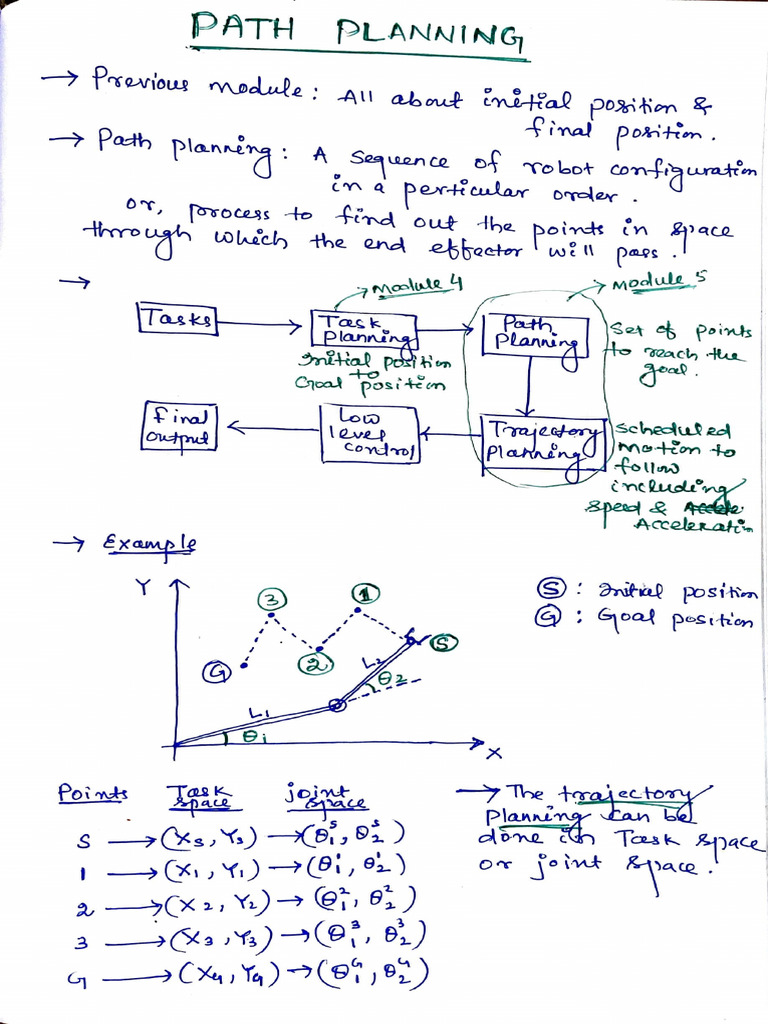 PATH PLANNING
→ Previous module: All about initial position &
final position.
→ Path planning: A sequence of robot configuration
in a perticular order.
or, process to find out the points in space
through which the end effector will pass.
→
→ Module 4
→ Module 5
Tasks
Task
Planning
Path
Planning
Set of points
to reach the
goal.
Initial position
to
Goal position
Final
output
Low
level
control
Trajectory
Planning
Scheduled
motion to
follow
including
speed &
Acceleration
→ Example
Y
3
1
S : Initial position
G : Goal position
G
2
S
L2
θ2
L1
θ1
X
Points Task space joint space
S → (Xs, Ys) → (θ₁ˢ, θ₂ˢ)
1 → (X1, Y1) → (θ₁¹, θ₂¹)
2 → (X2, Y2) → (θ₁², θ₂²)
3 → (X3, Y3) → (θ₁³, θ₂³)
G → (XG, YG) → (θ₁ᴳ, θ₂ᴳ)
→ The trajectory
Planning can be
done in Task space
or joint space.